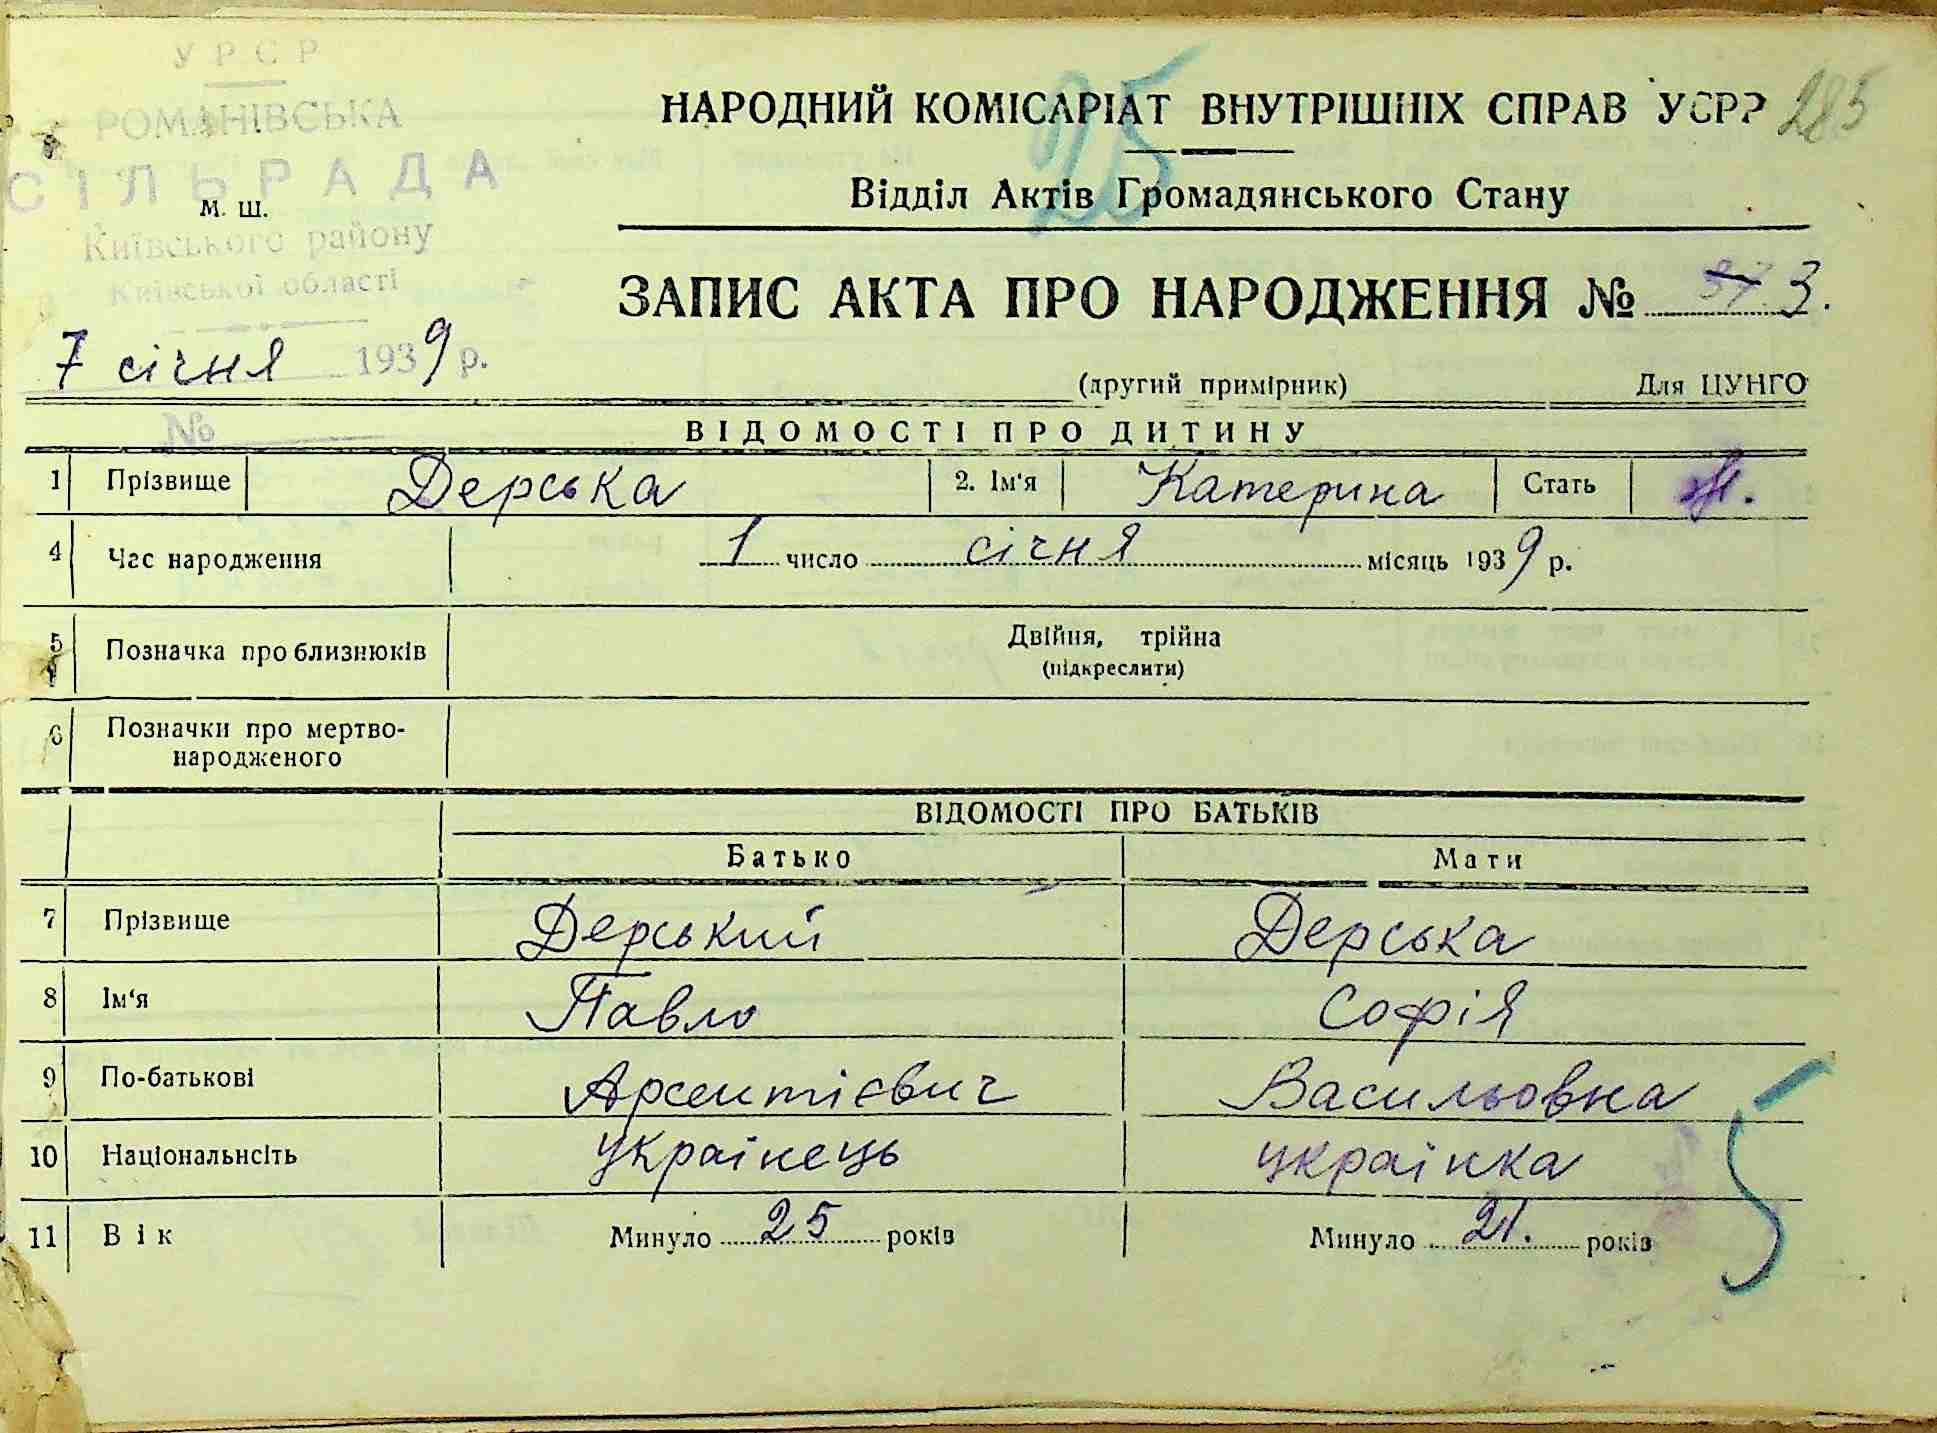 УРСР
РОМАНІВСЬКА
СІЛЬРАДА
м. ш.
Київського району
Київської області
7 січня 1939 р.
№
25
285
НАРОДНИЙ КОМІСАРІАТ ВНУТРІШНІХ СПРАВ УСРР
Відділ Актів Громадянського Стану
ЗАПИС АКТА ПРО НАРОДЖЕННЯ № 3.
(другий примірник) Для ЦУНГО
ВІДОМОСТІ ПРО ДИТИНУ
1 Прізвище Дерська 2. Ім'я Катерина Стать ж.
4 Час народження 1 число січня місяць 1939 р.
5 Позначка про близнюків Двійня, трійна
(підкреслити)
6 Позначки про мертво-
народженого
ВІДОМОСТІ ПРО БАТЬКІВ
Батько Мати
7 Прізвище Дерський Дерська
8 Ім'я Павло Софія
9 По-батькові Арсентієвич Васильовна
10 Національнсіть українець українка
11 Вік Минуло 25 років Минуло 21. років